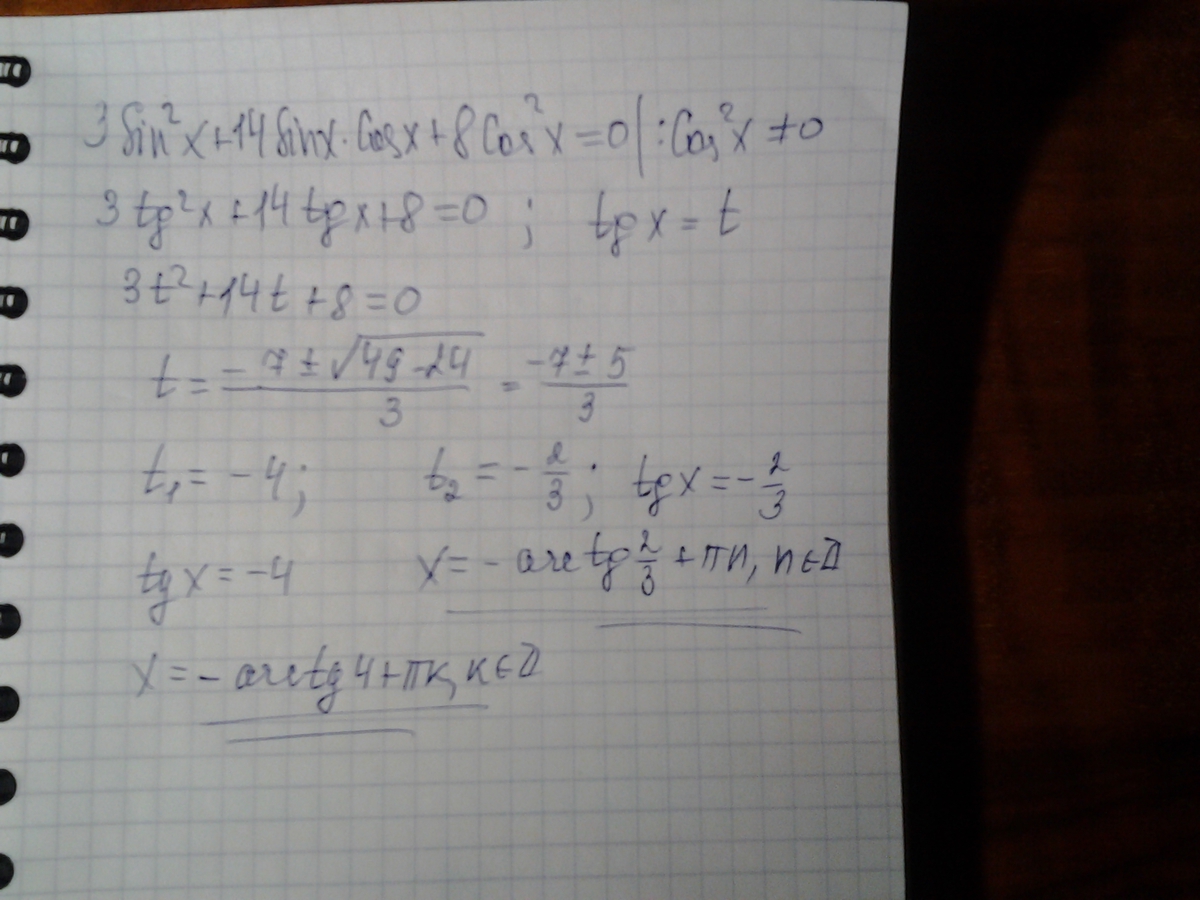 3 Sin²x + 14 Sinx · Cosx + 8 Cos²x = 0 | : Cos²x ≠ 0
3 tg²x + 14 tgx + 8 = 0 ; tgx = t
3t² + 14t + 8 = 0
t = (-7 ± √(49 - 24))/3 = (-7 ± 5)/3
t₁ = -4; t₂ = -2/3; tgx = -2/3
tgx = -4 x = - arctg 2/3 + πn, n∈Z
x = - arctg 4 + πk, k∈Z